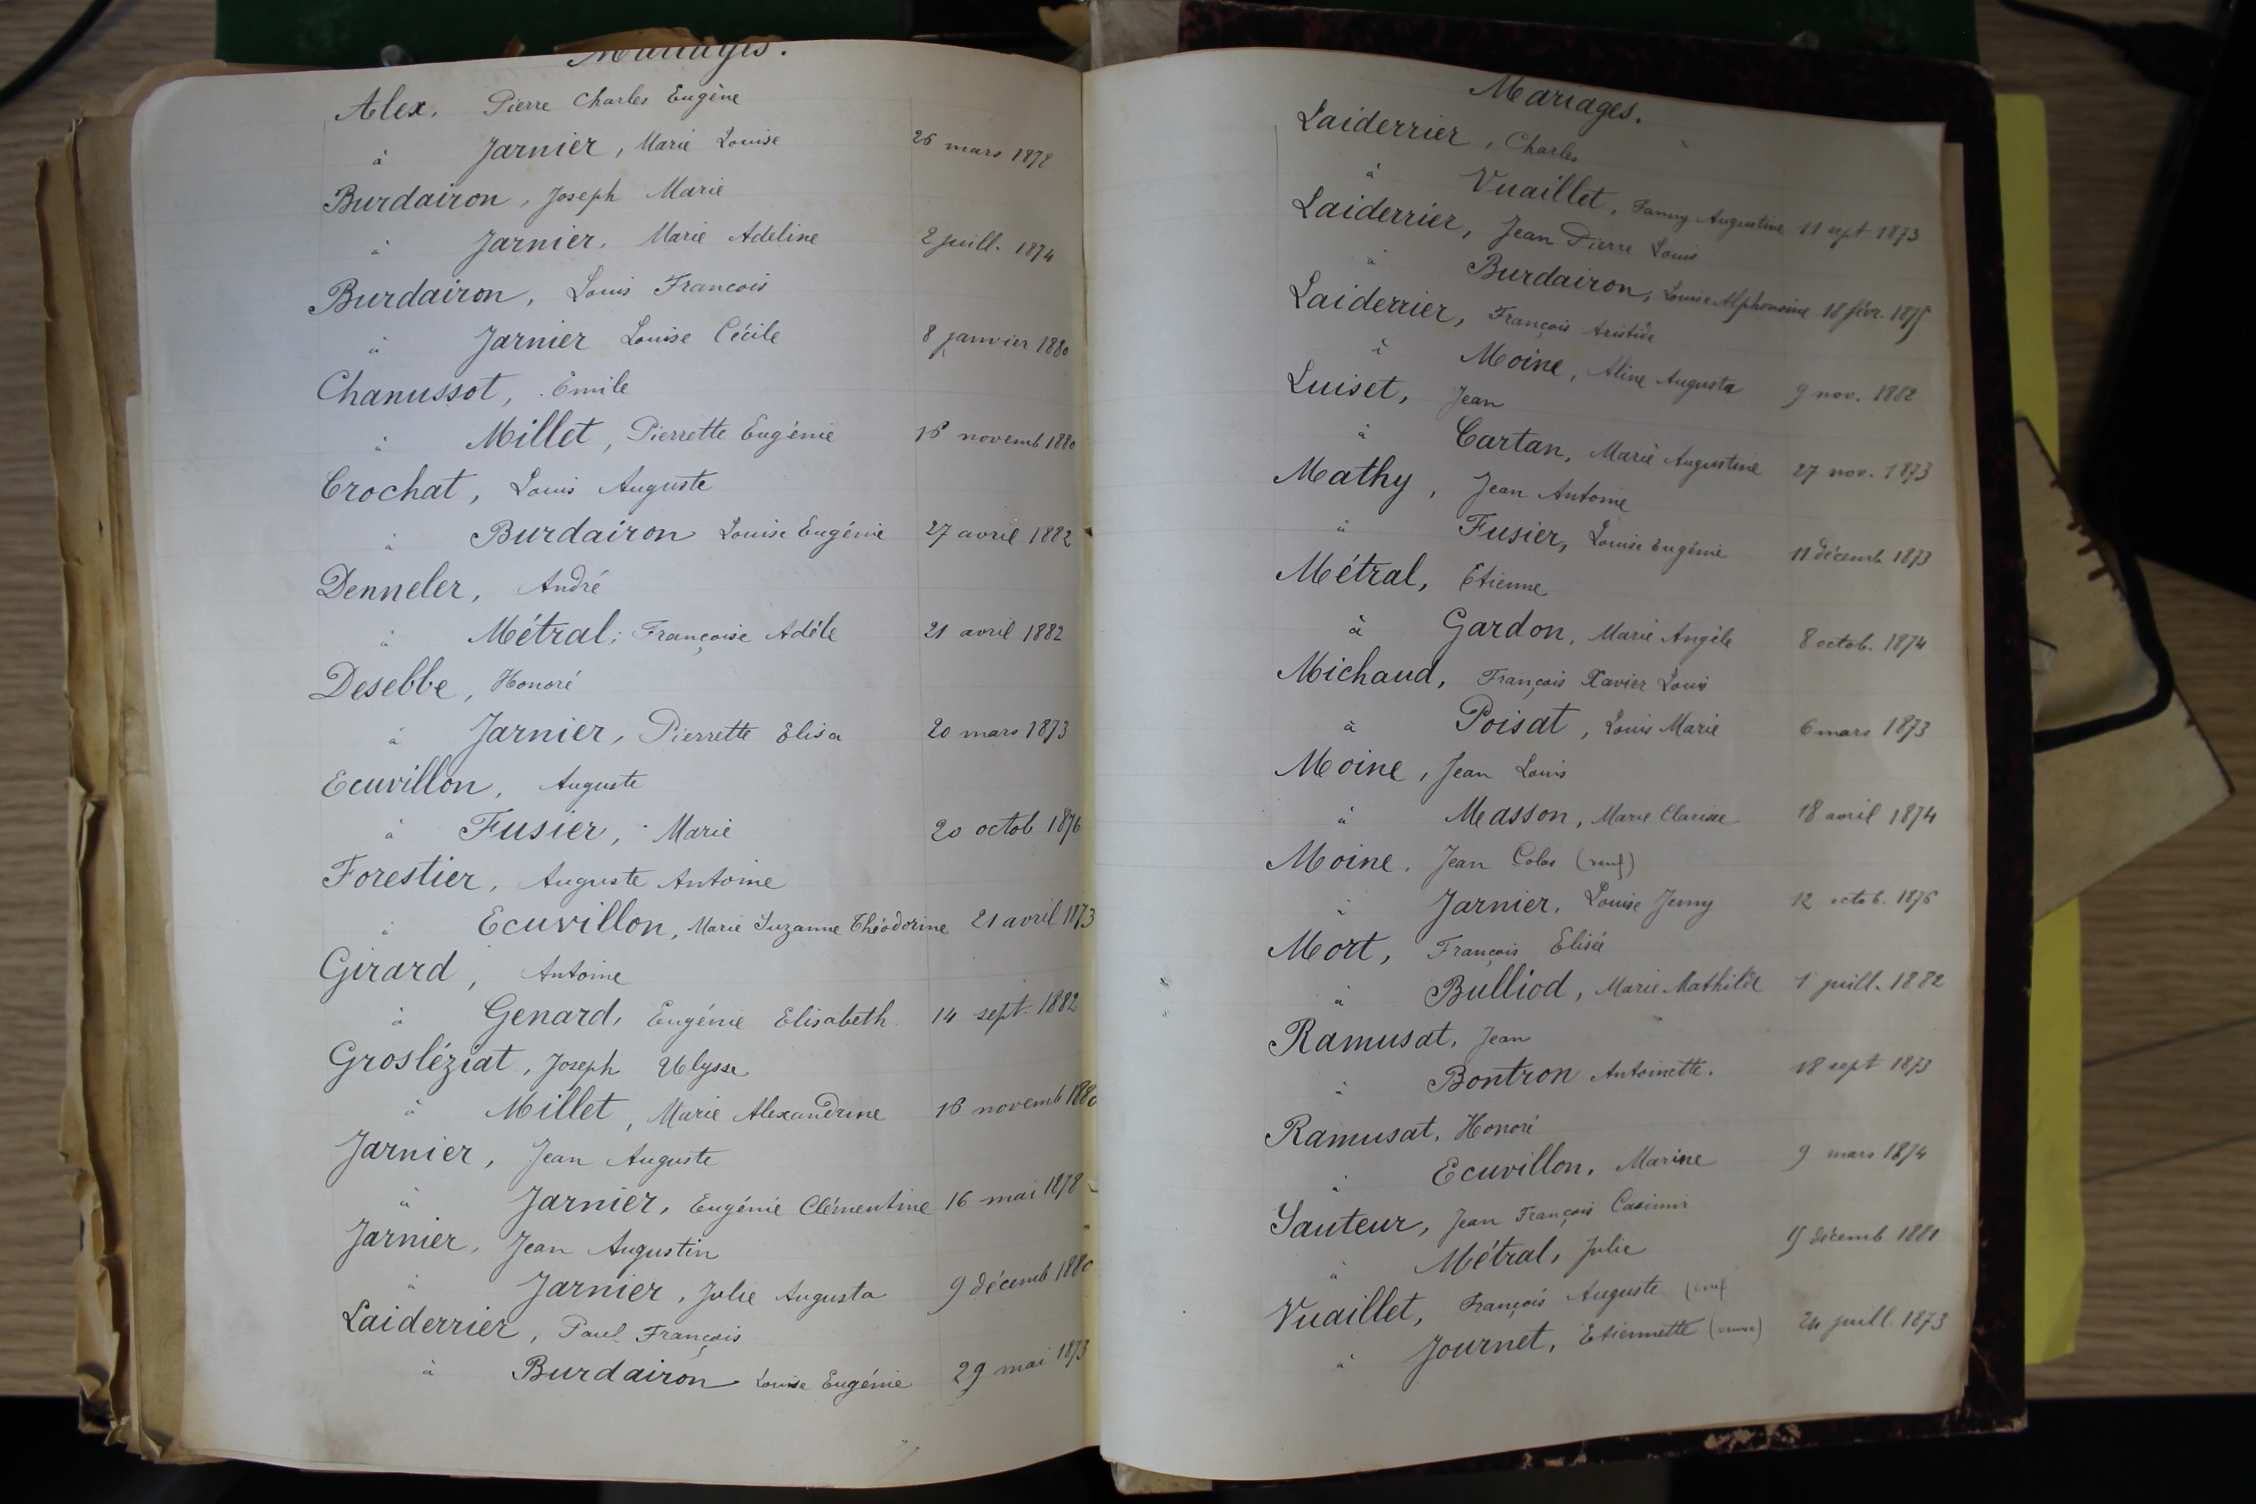 Mariages.
Alex, Pierre Charles Eugène
à Jarnier, Marie Louise 26 mars 1878
Burdairon, Joseph Marie
à Jarnier, Marie Adeline 2 juill. 1874
Burdairon, Louis François
à Jarnier Louise Cécile 8 janvier 1880
Chanussot, Emile
à Millet, Pierrette Eugénie 16 novemb 1880
Crochat, Louis Auguste
à Burdairon Louise Eugénie 27 avril 1882
Denneler, André
à Métral, Françoise Adèle 21 avril 1882
Desebbe, Honoré
à Jarnier, Pierrette Elisa 20 mars 1873
Ecuvillon, Auguste
à Fusier, Marie 20 octob 1876
Forestier, Auguste Antoine
à Ecuvillon, Marie Suzanne Théodorine 21 avril 1873
Girard, Antoine
à Genard, Eugénie Elisabeth 14 sept. 1882
Grosléziat, Joseph Ulysse
à Millet, Marie Alexandrine 16 novemb 1880
Jarnier, Jean Auguste
à Jarnier, Eugénie Clémentine 16 mai 1878
Jarnier, Jean Augustin
à Jarnier, Julie Augusta 9 décemb 1880
Laiderrier, Paul François
à Burdairon Louise Eugénie 29 mai 1873
Mariages.
Laiderrier, Charles
à Vuaillet, Fanny Augustine 11 sept 1873
Laiderrier, Jean Pierre Louis
à Burdairon, Louise Alphonsine 18 févr.
Laiderrier, François Aristide
à Moine, Aline Augusta 9 nov. 1882
Luiset, Jean
à Cartan, Marie Augustine 27 nov. 1873
Mathy, Jean Antoine
à Fusier, Louise Eugénie 11 décemb 1873
Métral, Etienne
à Gardon, Marie Angèle 8 octob. 1874
Michaud, François Xavier Louis
à Poisat, Louis Marie 6 mars 1873
Moine, Jean Louis
à Masson, Marie Clarisse 18 avril 1874
Moine, Jean Colas (veuf)
à Jarnier, Louise Jenny 12 octob. 1876
Mort, François Elisée
à Bulliod, Marie Mathilde 1 juill. 1882
Ramusat, Jean
à Bontron Antoinette. 18 sept 1873
Ramusat, Honoré
à Ecuvillon, Marine 9 mars 1874
Sauteur, Jean François Casimir
à Métral, Julie décemb 1881
Vuaillet, François Auguste (veuf
à Journet, Etiennette (veuve) 24 juill. 1873